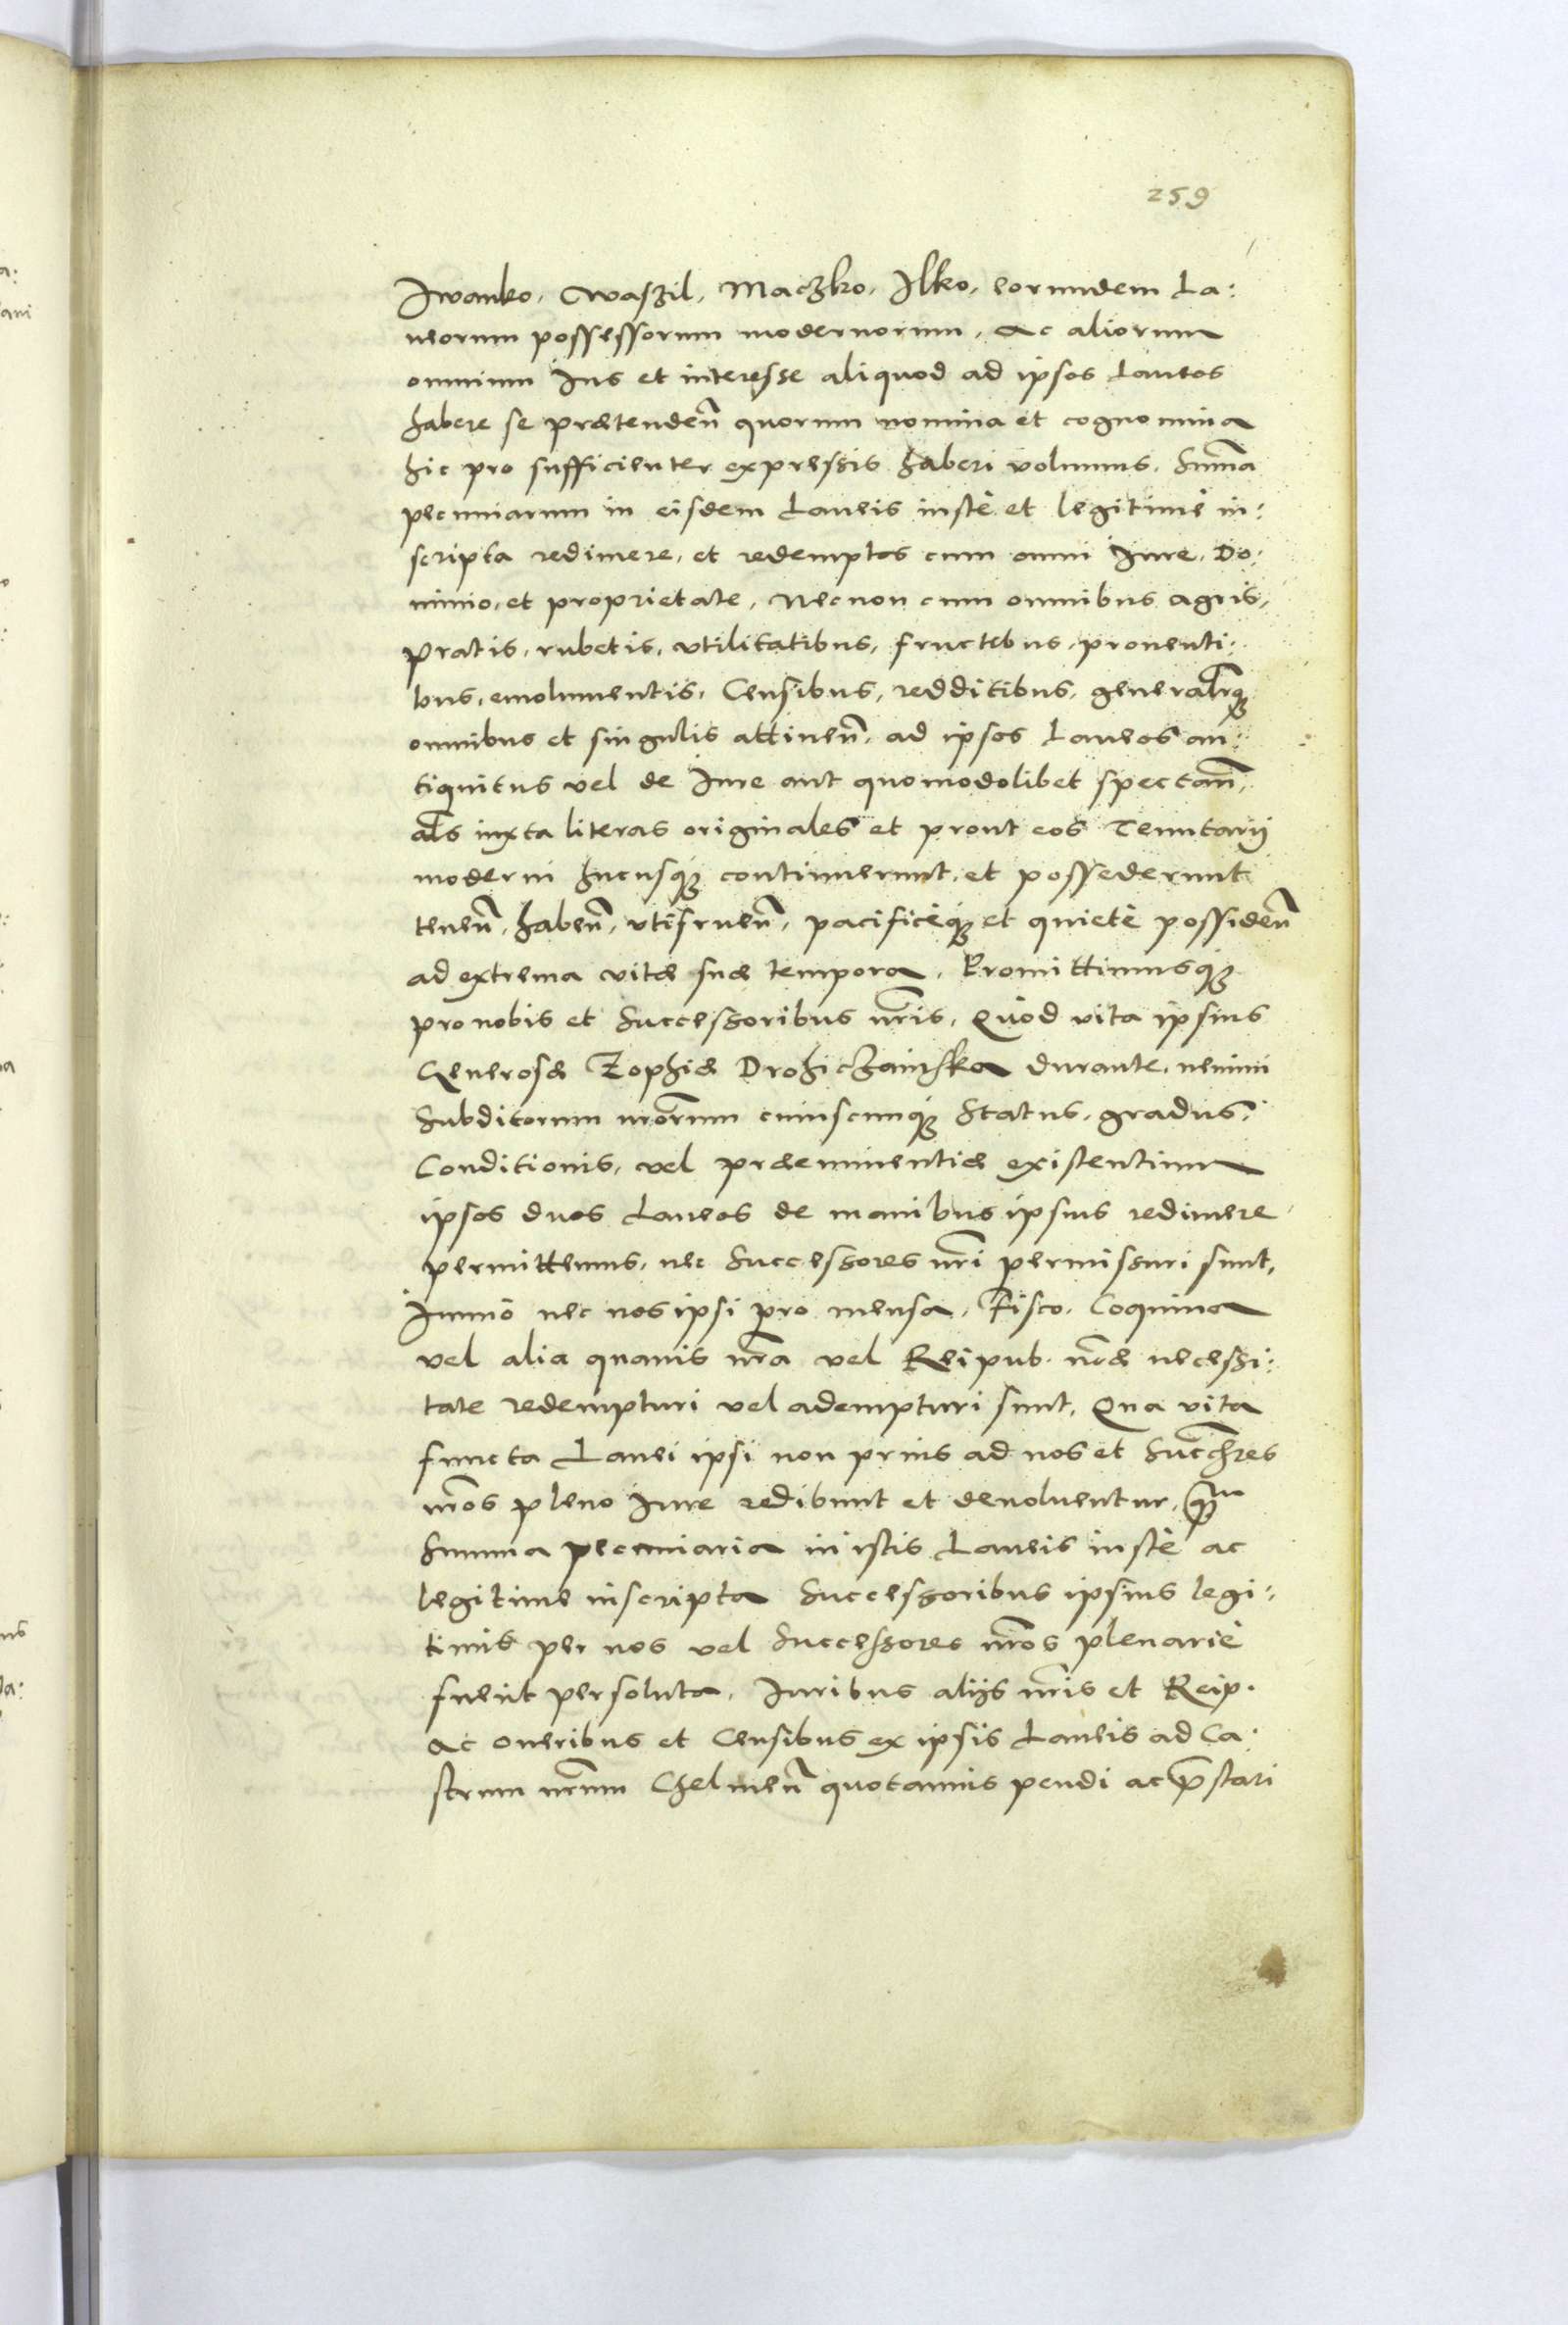 259
Iwanko, Waszil, Maczko, Ilko, eorundem La:
neorum possessorum modernorum, ac aliorum
omnium Ius et interesse aliquod ad ipsos Laneos
habere se prætendeñ quorum nomina et cognomina
hic pro sufficienter expressis haberi volumus, Sum̃a
pecuniarum in eisdem Laneis iustè et legitimè in:
scripta redimere, et redemptos cum omni Iure, Do:
minio, et proprietate, Necnon cum omnibus agris,
pratis, rubetis, vtilitatibus, fructibus, prouenti:
bus, emolumentis, Censibus, redditibus, generalr̃q3
omnibus et singulis attineñ, ad ipsos Laneos an:
tiquitus vel de Iure aut quomodolibet spectañ,
als̃ iuxta literas originales et prout eos Tenutarij
moderni hucusq3 continuerunt, et possederunt
teneñ, habeñ, vtifrueñ, pacificèq3 et quietè possideñ
ad extrema vitæ suæ tempora, Promittimusq3
pro nobis et Successoribus nr̃is, Quòd vita ipsius
Generosæ Zophiæ Drohiczanska durante, nemini
Subditorum nr̃orum cuiuscunq3 Status, gradus,
Conditionis, vel præeminentiæ existentium
ipsos duos Laneos de manibus ipsius redimere
permittemus, nec Successores nr̃i permissuri sunt,
Immò nec nos ipsi pro mensa, Fisco, Coquina
vel alia quauis nr̃a vel Reipub. nr̃æ necessi:
tate redempturi vel adempturi sunt, Qua vita
functa Lanei ipsi non prius ad nos et Succr̃es
nr̃os pleno Iure redibunt et deuoluentur, q̃m
Summa pecuniaria in istis Laneis iustè ac
legitime inscripta Successoribus ipsius legi:
timis per nos vel Successores nr̃os plenariè
fuerit persoluta, Iuribus alijs nr̃is et Reip.
ac oneribus et Censibus ex ipsis Laneis ad Ca:
strum nr̃um Chelmeñ quotannis pendi ac p̃stari